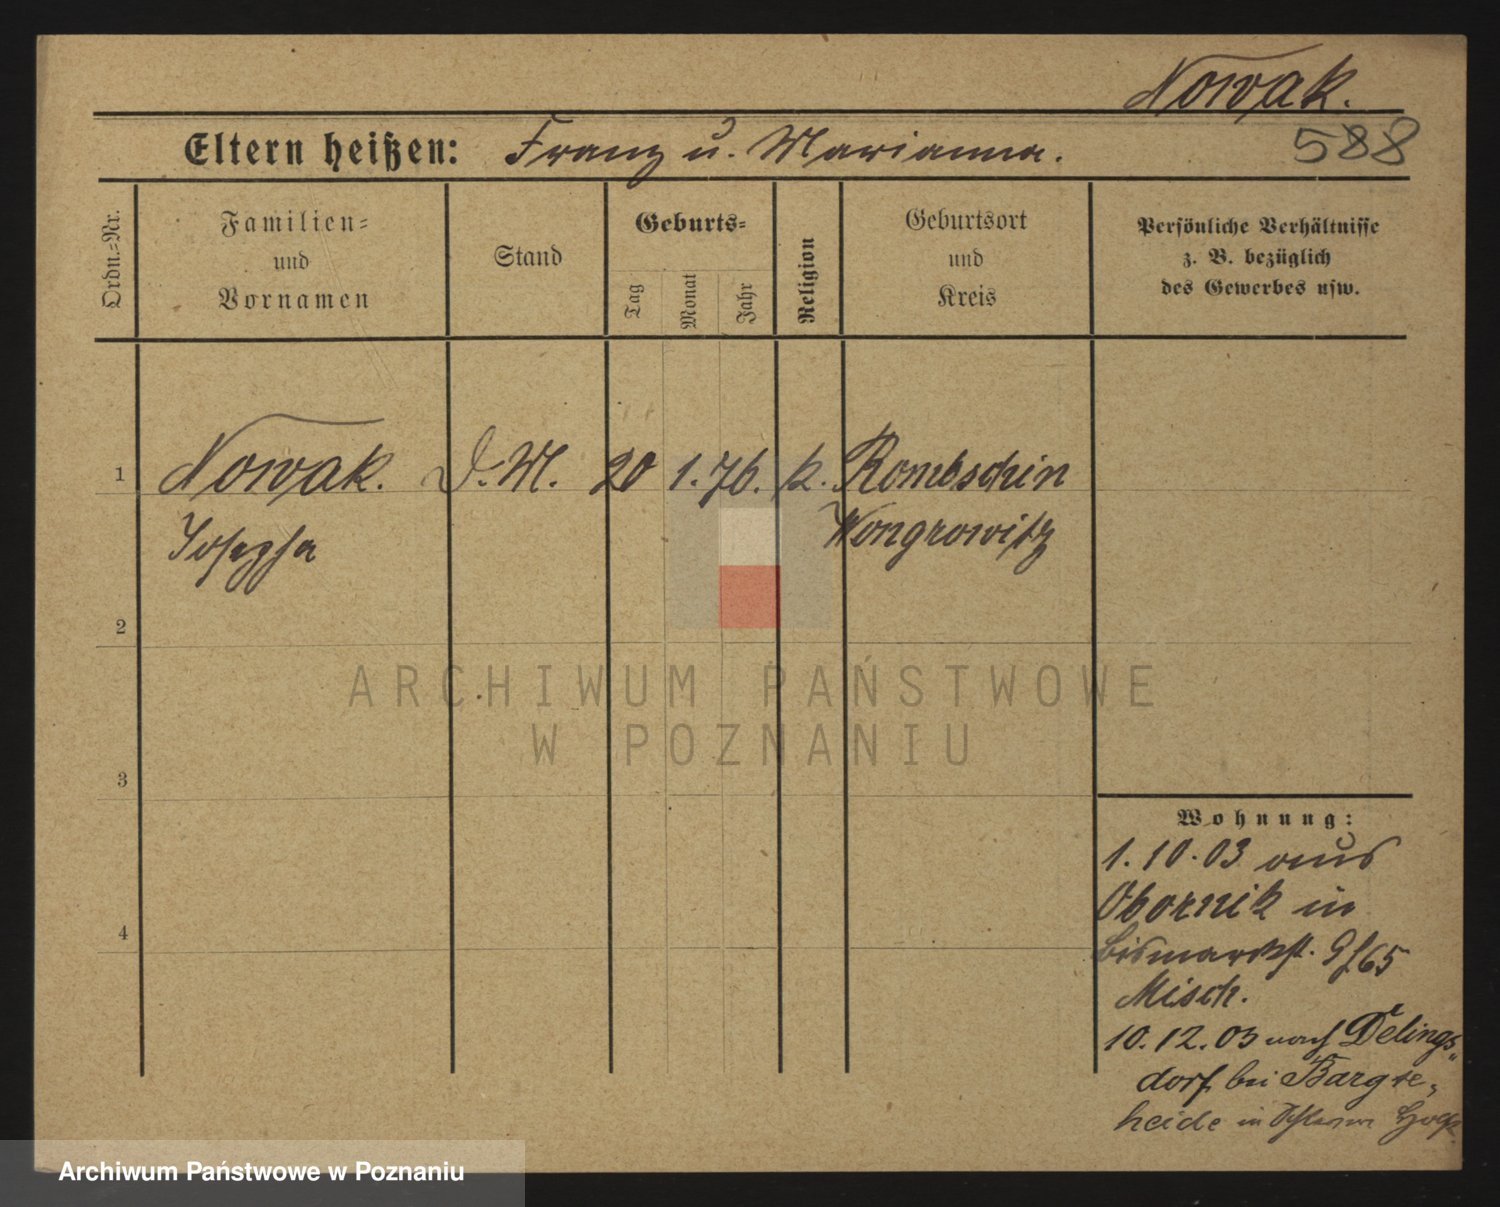 Nowak.
588
Eltern heißen: Franz u. Marianna.
Ordn.=Nr.
Familien=
und
Vornamen
Stand
Geburts=
Tag
Monat
Jahr
Religion
Geburtsort
und
Kreis
Persönliche Verhältnisse
z. B. bezüglich
des Gewerbes usw.
1 Nowak. D. M. 20 1. 76. k. Rombschin
Josepha Wongrowitz
2
3
4
Wohnung:
1. 10. 03 aus
Obornik in
Bismarckst. 9 65
Misch.
10. 12. 03 nach Delings„
dorf bei Bargte„
heide in
ARCHIWUM PAŃSTWOWE
W POZNANIU
Archiwum Państwowe w Poznaniu